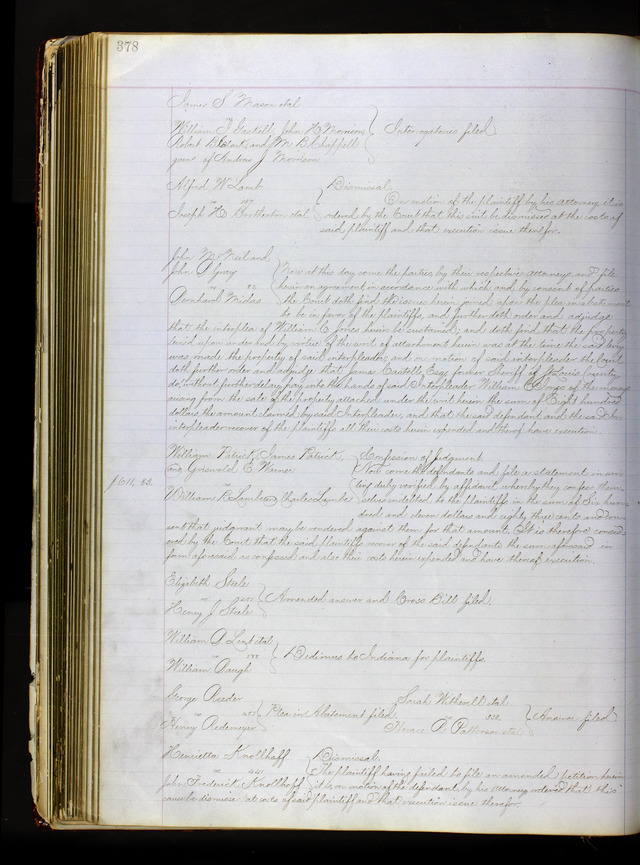 378
James S Mason etal
William T Gaskill, John H Morrison
Robert D Clark and Wm B Chappell
of Andrew J Morrison
Interrogatories filed
Alfred W Lamb
Joseph H Brotherton etal
Dismissal
On motion of the plaintiff by his attorney it is
ordered by the Court that this suit be dismissed at the costs of
said plaintiff and that execution issue therefor.
John M
John A Gray
Midas
Now at this day come the parties by their respective attorneys and file
herein an agreement in accordance with which and by consent of parties
the Court doth find the issues herein joined upon the plea in abatement
to be in favor of the plaintiffs, and further doth order and adjudge
that the interplea of William C Jones herein be sustained, and doth find that the property
levied upon under and by virtue of the writ of attachment herein was at the time the said levy
was made the property of said interpleader, and on motion of said interpleader the Court
doth further order and adjudge that James Castello Esq former Sheriff of St Louis County
do, without further delay, pay into the hands of said Interpleader William C Jones of the money
arising from the sale of the property attached under the writ herein the sum of Eight hundred
dollars, the amount claimed by said Interpleader, and that the said defendant and the said
interpleader recover of the plaintiffs all their costs herein expended and thereof have execution.
William Patrick, James Patrick,
and Griswold E Warner
$611, 83.
William R Lamb and Charles Lamb
Confession of Judgment
Now come the defendants and file a statement in
ting duly verified by affidavit whereby they confess
selves indebted to the plaintiffs in the sum of Six hun
dred and eleven dollars and eighty three cents and con
sent that judgment may be rendered against them for that amount. It is therefore consid
ered by the Court that the said plaintiffs recover of the said defendants the sum aforesaid in
form aforesaid as confessed and also their costs herein expended and have thereof execution.
Elizabeth Steele
Henry J Steele
Amended answer and Cross Bill filed.
William A Lent etal
William Baugh
Dedimus to Indiana for plaintiffs.
George Reeder
Henry Redemeyer
Plea in Abatement filed
Sarah Witherell etal
Horace B Patterson etal
Answer filed
Henrietta Knollhoff
John Frederick Knollhoff
Dismissal.
The plaintiff having failed to file an amended petition herein
it is on motion of the defendant by his attorney ordered that this
cause be dismisse at costs of said plaintiff and that execution issue therefor.